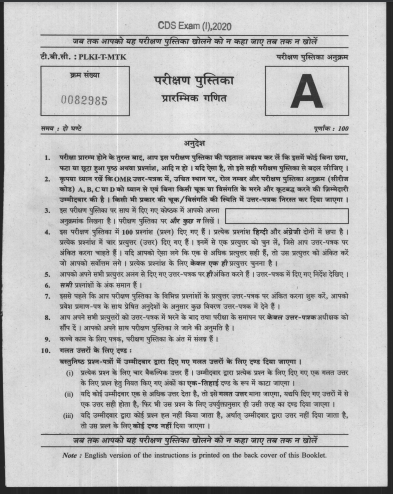 CDS Exam (I),2020
जब तक आपको यह परीक्षण पुस्तिका खोलने को न कहा जाए तब तक न खोलें
टी.बी.सी. : PLKI-T-MTK
परीक्षण पुस्तिका अनुक्रम
क्रम संख्या
0082985
परीक्षण पुस्तिका
प्रारम्भिक गणित
A
समय : दो घण्टे
पूर्णांक : 100
अनुदेश
1. परीक्षा प्रारम्भ होने के तुरन्त बाद, आप इस परीक्षण पुस्तिका की पड़ताल अवश्य कर लें कि इसमें कोई बिना छपा,
फटा या छूटा हुआ पृष्ठ अथवा प्रश्नांश, आदि न हो । यदि ऐसा है, तो इसे सही परीक्षण पुस्तिका से बदल लीजिए ।
2. कृपया ध्यान रखें कि OMR उत्तर-पत्रक में, उचित स्थान पर, रोल नम्बर और परीक्षण पुस्तिका अनुक्रम (सीरीज़
कोड) A, B, C या D को ध्यान से एवं बिना किसी चूक या विसंगति के भरने और कूटबद्ध करने की ज़िम्मेदारी
उम्मीदवार की है । किसी भी प्रकार की चूक/विसंगति की स्थिति में उत्तर-पत्रक निरस्त कर दिया जाएगा ।
3. इस परीक्षण पुस्तिका पर साथ में दिए गए कोष्ठक में आपको अपना
अनुक्रमांक लिखना है । परीक्षण पुस्तिका पर और कुछ न लिखें ।
4. इस परीक्षण पुस्तिका में 100 प्रश्नांश (प्रश्न) दिए गए हैं । प्रत्येक प्रश्नांश हिन्दी और अंग्रेज़ी दोनों में छपा है ।
प्रत्येक प्रश्नांश में चार प्रत्युत्तर (उत्तर) दिए गए हैं । इनमें से एक प्रत्युत्तर को चुन लें, जिसे आप उत्तर-पत्रक पर
अंकित करना चाहते हैं । यदि आपको ऐसा लगे कि एक से अधिक प्रत्युत्तर सही हैं, तो उस प्रत्युत्तर को अंकित करें
जो आपको सर्वोत्तम लगे । प्रत्येक प्रश्नांश के लिए केवल एक ही प्रत्युत्तर चुनना है ।
5. आपको अपने सभी प्रत्युत्तर अलग से दिए गए उत्तर-पत्रक पर ही अंकित करने हैं । उत्तर-पत्रक में दिए गए निर्देश देखिए ।
6. सभी प्रश्नांशों के अंक समान हैं ।
7. इससे पहले कि आप परीक्षण पुस्तिका के विभिन्न प्रश्नांशों के प्रत्युत्तर उत्तर-पत्रक पर अंकित करना शुरू करें, आपको
प्रवेश प्रमाण-पत्र के साथ प्रेषित अनुदेशों के अनुसार कुछ विवरण उत्तर-पत्रक में देने हैं ।
8. आप अपने सभी प्रत्युत्तरों को उत्तर-पत्रक में भरने के बाद तथा परीक्षा के समापन पर केवल उत्तर-पत्रक अधीक्षक को
सौंप दें । आपको अपने साथ परीक्षण पुस्तिका ले जाने की अनुमति है ।
9. कच्चे काम के लिए पत्रक, परीक्षण पुस्तिका के अंत में संलग्न हैं ।
10. गलत उत्तरों के लिए दण्ड :
वस्तुनिष्ठ प्रश्न-पत्रों में उम्मीदवार द्वारा दिए गए गलत उत्तरों के लिए दण्ड दिया जाएगा ।
(i) प्रत्येक प्रश्न के लिए चार वैकल्पिक उत्तर हैं । उम्मीदवार द्वारा प्रत्येक प्रश्न के लिए दिए गए एक गलत उत्तर
के लिए प्रश्न हेतु नियत किए गए अंकों का एक-तिहाई दण्ड के रूप में काटा जाएगा ।
(ii) यदि कोई उम्मीदवार एक से अधिक उत्तर देता है, तो इसे गलत उत्तर माना जाएगा, यद्यपि दिए गए उत्तरों में से
एक उत्तर सही होता है, फिर भी उस प्रश्न के लिए उपर्युक्तानुसार ही उसी तरह का दण्ड दिया जाएगा ।
(iii) यदि उम्मीदवार द्वारा कोई प्रश्न हल नहीं किया जाता है, अर्थात् उम्मीदवार द्वारा उत्तर नहीं दिया जाता है,
तो उस प्रश्न के लिए कोई दण्ड नहीं दिया जाएगा ।
जब तक आपको यह परीक्षण पुस्तिका खोलने को न कहा जाए तब तक न खोलें
Note : English version of the instructions is printed on the back cover of this Booklet.